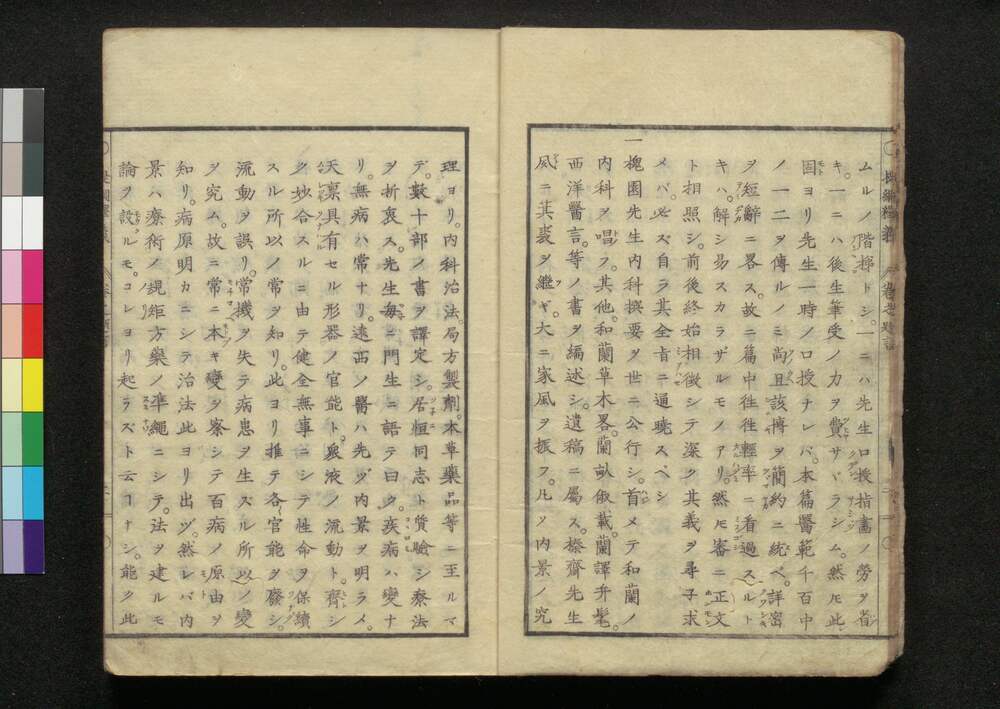 ムルノ階梯トシ。一ニハ先生口授指畫ノ勞ヲ省
キ。一ニハ後生筆受ノ力ヲ費サヾラシム。然ㇾ𪜈此
固ヨリ先生一時ノ口授ナレバ。本篇醫範千百中
ノ一二ヲ傳ルノミ尚且該博ヲ簡約ニ統ベ。詳密
ヲ短辭ニ畧ス。故ニ篇中往往輕率ニ看過スルト
キハ。解シ易スカラザルモノアリ。然𪜈審ニ正文
ト相照シ。前後終始相徴シテ深ク其義ヲ尋子求
メバ。必ズ自ラ其全旨ニ通曉スベシ
一槐園先生内科撰要ヲ世ニ公行シ。首メテ和蘭ノ
内科ヲ唱フ。其他。和蘭草本畧。蘭畝俶載。蘭譯弁髦。
西洋醫言。等ノ書ヲ編述シ。遺稿ニ屬ス。榛齊先生
夙ニ其裘ヲ繼ギ。大ニ家風ヲ振フ。凡ソ内景ノ究
理ヨリ。内科治法。局方製劑。本草藥品等ニ至ルマ
デ。數十部ノ書ヲ譯定シ。居恒同志ト質驗シ療法
ヲ折衷ス。先生毎ニ門生ニ語テ曰ク。疾病ハ變ナ
リ。無病ハ常ナリ。遠西ノ醫ハ先ヅ内景ヲ明ラメ。
天稟具有セル形器ノ官能ト。衆液ノ流動ト。齊シ
ク妙合スルニ由テ健全無事ニシテ性命ヲ保續
スル所以ノ常ヲ知リ。此ヨリ推テ各官能ヲ廢シ。
流動ヲ誤リ。常機ヲ失テ病患ヲ生スル所以ノ變
ヲ究ム。故ニ常ニ本キ變ヲ察シテ百病ノ原由ヲ
知リ。病原明カニシテ治法此ヨリ出ヅ。然レバ内
景ハ療術ノ規矩方藥ノ準繩ニシテ。法ヲ建ルモ
論ヲ設ルモ。コレヨリ起ラズト云ヿナシ。能ク此